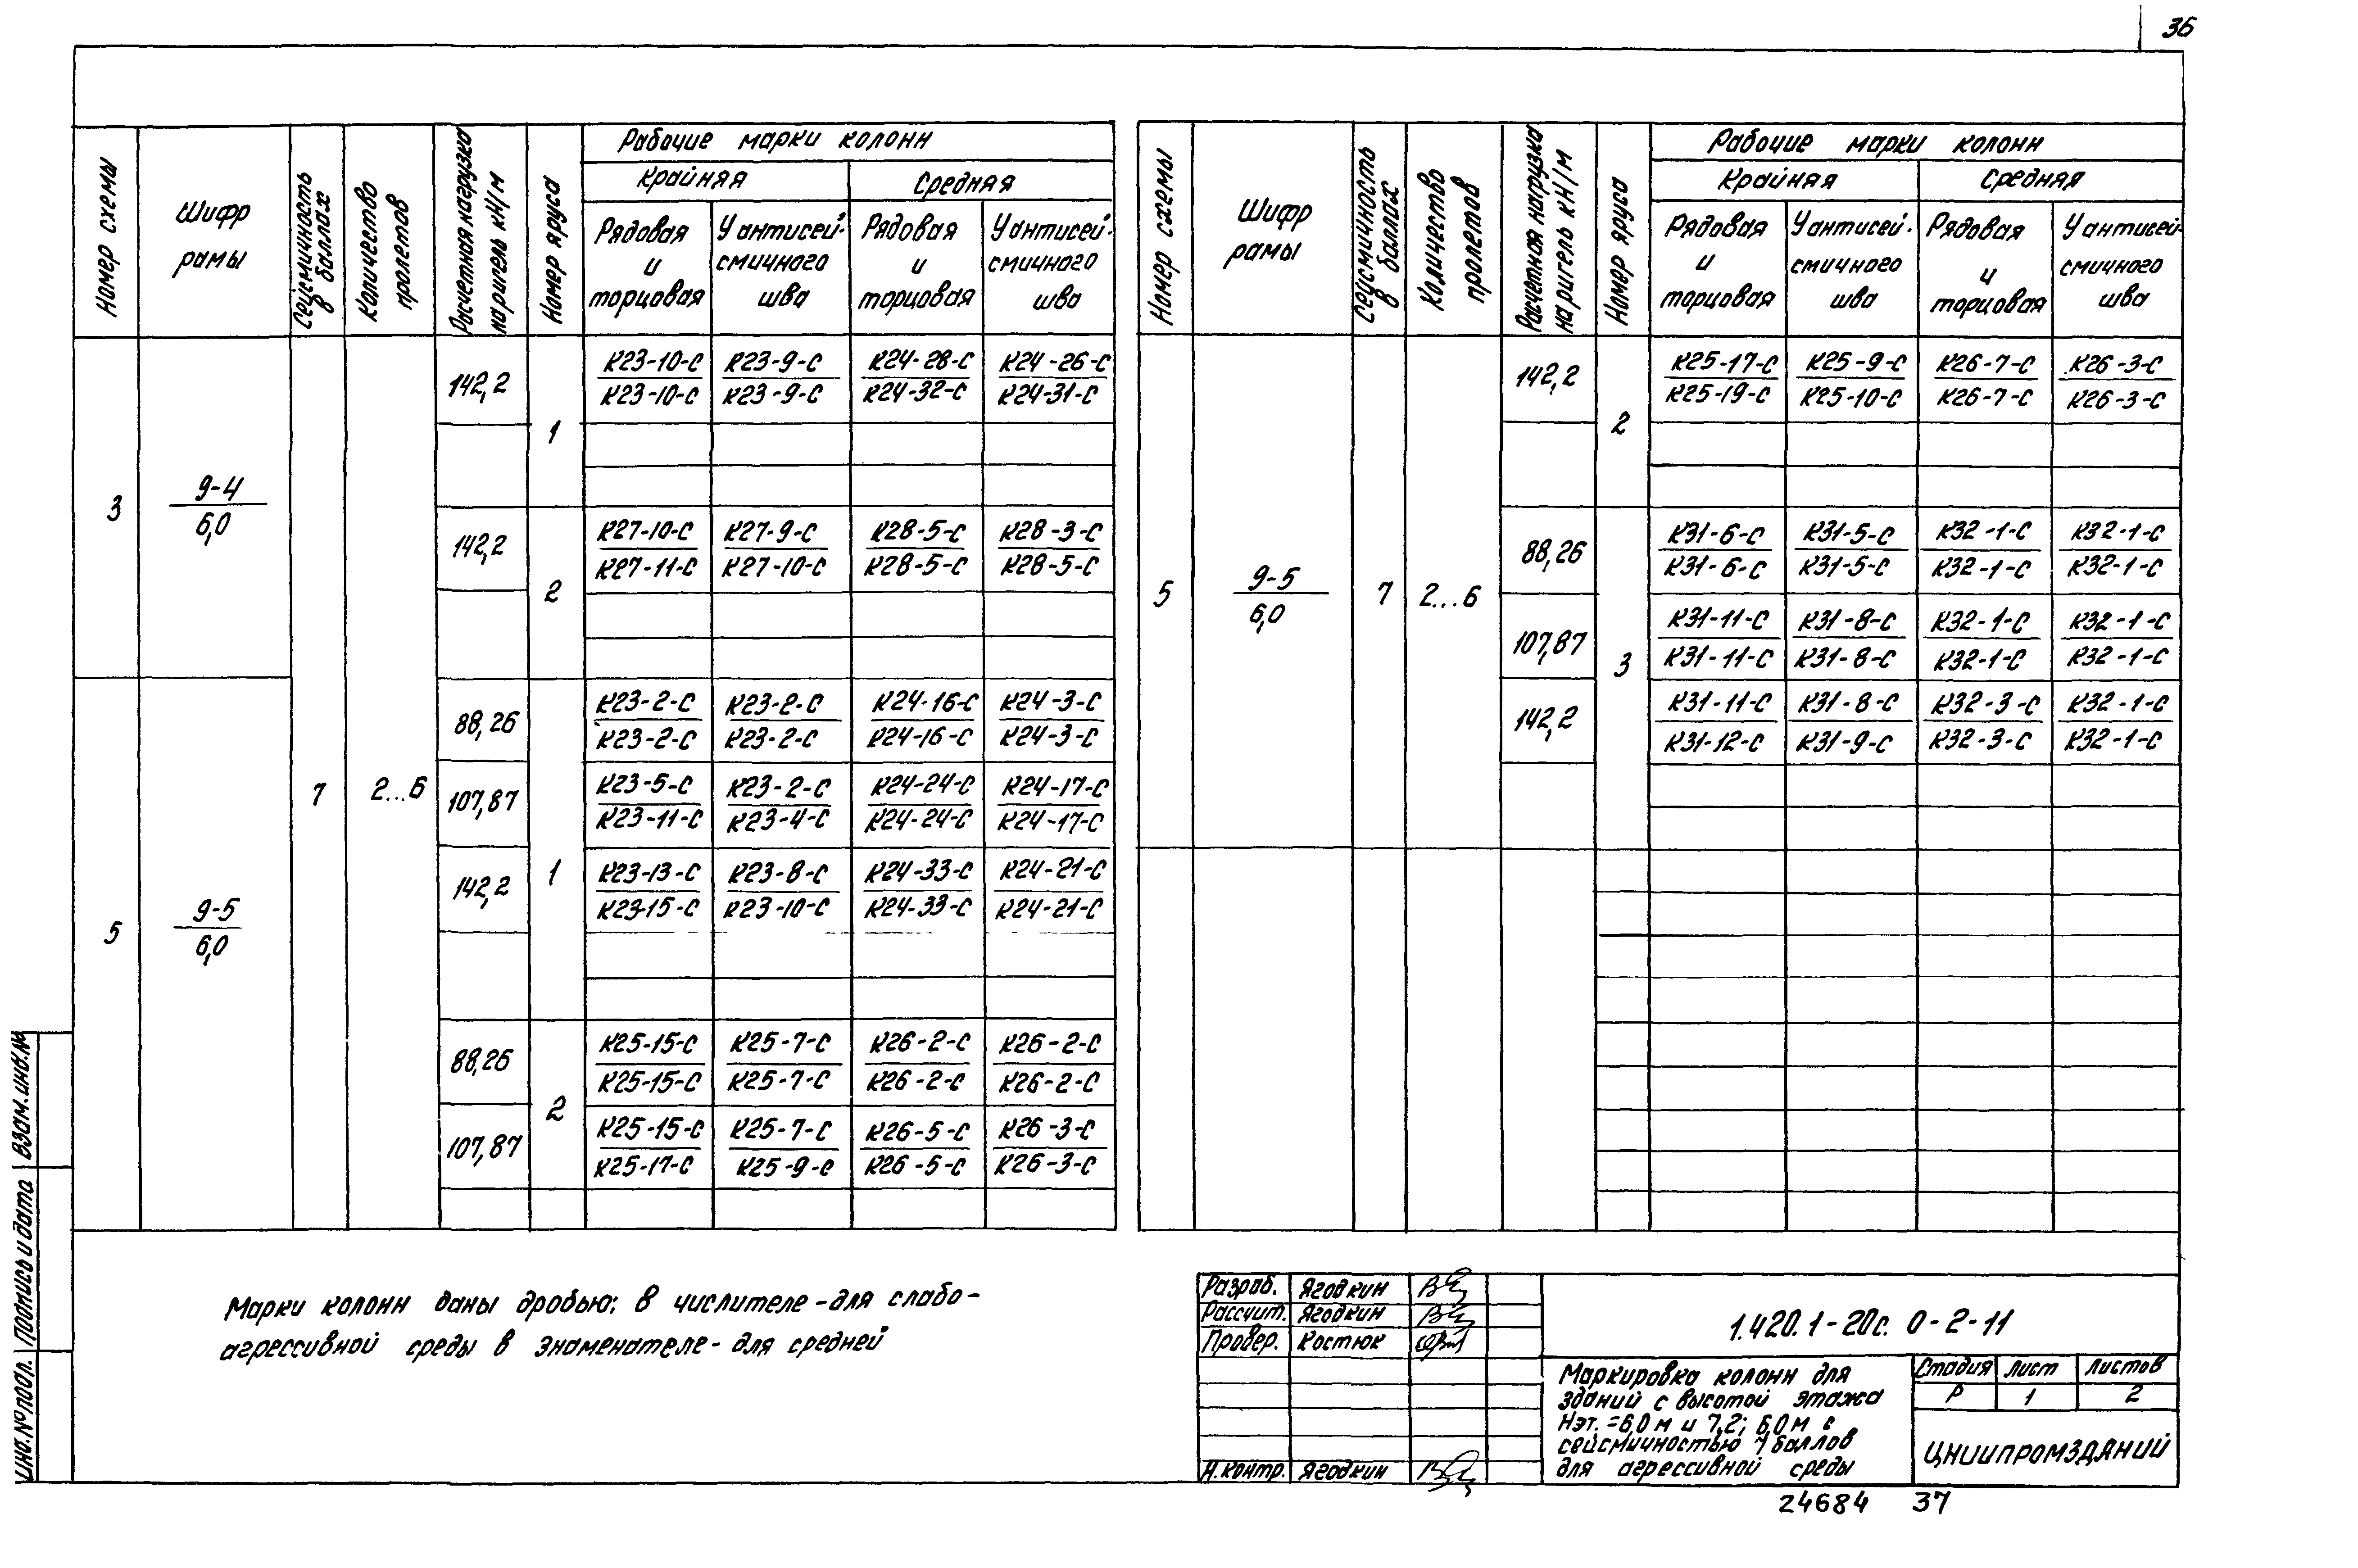 36
Номер схемы
Шифр рамы
Сейсмичность в баллах
Количество пролетов
Расчетная нагрузка на ригель кН/м
Номер яруса
Рабочие марки колонн
Крайняя
Средняя
Рядовая и торцовая
У антисей-смичного шва
Рядовая и торцовая
У антисей-смичного шва
3
9-4
6,0
7
2...6
142,2
1
К23-10-С К23-9-С К24-28-С К24-26-С
К23-10-С К23-9-С К24-32-С К24-31-С
142,2
2
К27-10-С К27-9-С К28-5-С К28-3-С
К27-11-С К27-10-С К28-5-С К28-5-С
5
9-5
6,0
88,26
1
К23-2-С К23-2-С К24-16-С К24-3-С
К23-2-С К23-2-С К24-16-С К24-3-С
107,87
К23-5-С К23-2-С К24-24-С К24-17-С
К23-11-С К23-4-С К24-24-С К24-17-С
142,2
К23-13-С К23-8-С К24-33-С К24-21-С
К23-15-С К23-10-С К24-33-С К24-21-С
88,26
2
К25-15-С К25-7-С К26-2-С К26-2-С
К25-15-С К25-7-С К26-2-С К26-2-С
107,87
К25-15-С К25-7-С К26-5-С К26-3-С
К25-17-С К25-9-С К26-5-С К26-3-С
Номер схемы
Шифр рамы
Сейсмичность в баллах
Количество пролетов
Расчетная нагрузка на ригель кН/м
Номер яруса
Рабочие марки колонн
Крайняя
Средняя
Рядовая и торцовая
У антисей-смичного шва
Рядовая и торцовая
У антисей-смичного шва
5
9-5
6,0
7
2...6
142,2
2
К25-17-С К25-9-С К26-7-С К26-3-С
К25-19-С К25-10-С К26-7-С К26-3-С
88,26
3
К31-6-С К31-5-С К32-1-С К32-1-С
К31-6-С К31-5-С К32-1-С К32-1-С
107,87
К31-11-С К31-8-С К32-1-С К32-1-С
К31-11-С К31-8-С К32-1-С К32-1-С
142,2
К31-11-С К31-8-С К32-3-С К32-1-С
К31-12-С К31-9-С К32-3-С К32-1-С
Марки колонн даны дробью: в числителе-для слабо-
агрессивной среды в знаменателе-для средней
Взам.инв.№
Подпись и дата
Инв.№ подл.
Разраб. Ягодкин
Рассчит. Ягодкин
Провер. Костюк
Н.контр. Ягодкин
1.420.1-20с. 0-2-11
Маркировка колонн для
зданий с высотой этажа
Нэт.=6,0м и 7,2; 6,0м с
сейсмичностью 7 баллов
для агрессивной среды
Стадия Лист Листов
Р 1 2
ЦНИИПРОМЗДАНИЙ
24684 37